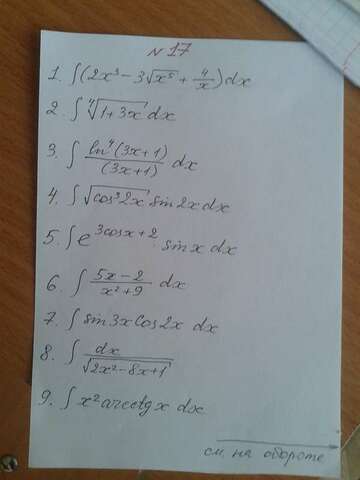 № 17
1. ∫(2x³ - 3√x⁵ + 4/x)dx
2. ∫ ⁴√(1+3x) dx
3. ∫ ln⁴(3x+1)/(3x+1) dx
4. ∫ √(cos³2x) sin2x dx
5. ∫ e^(3cosx+2) · sinx dx
6. ∫ (5x-2)/(x²+9) dx
7. ∫ sin3x cos2x dx
8. ∫ dx/√(2x²-8x+1)
9. ∫ x² arcctg x dx
см. на обороте